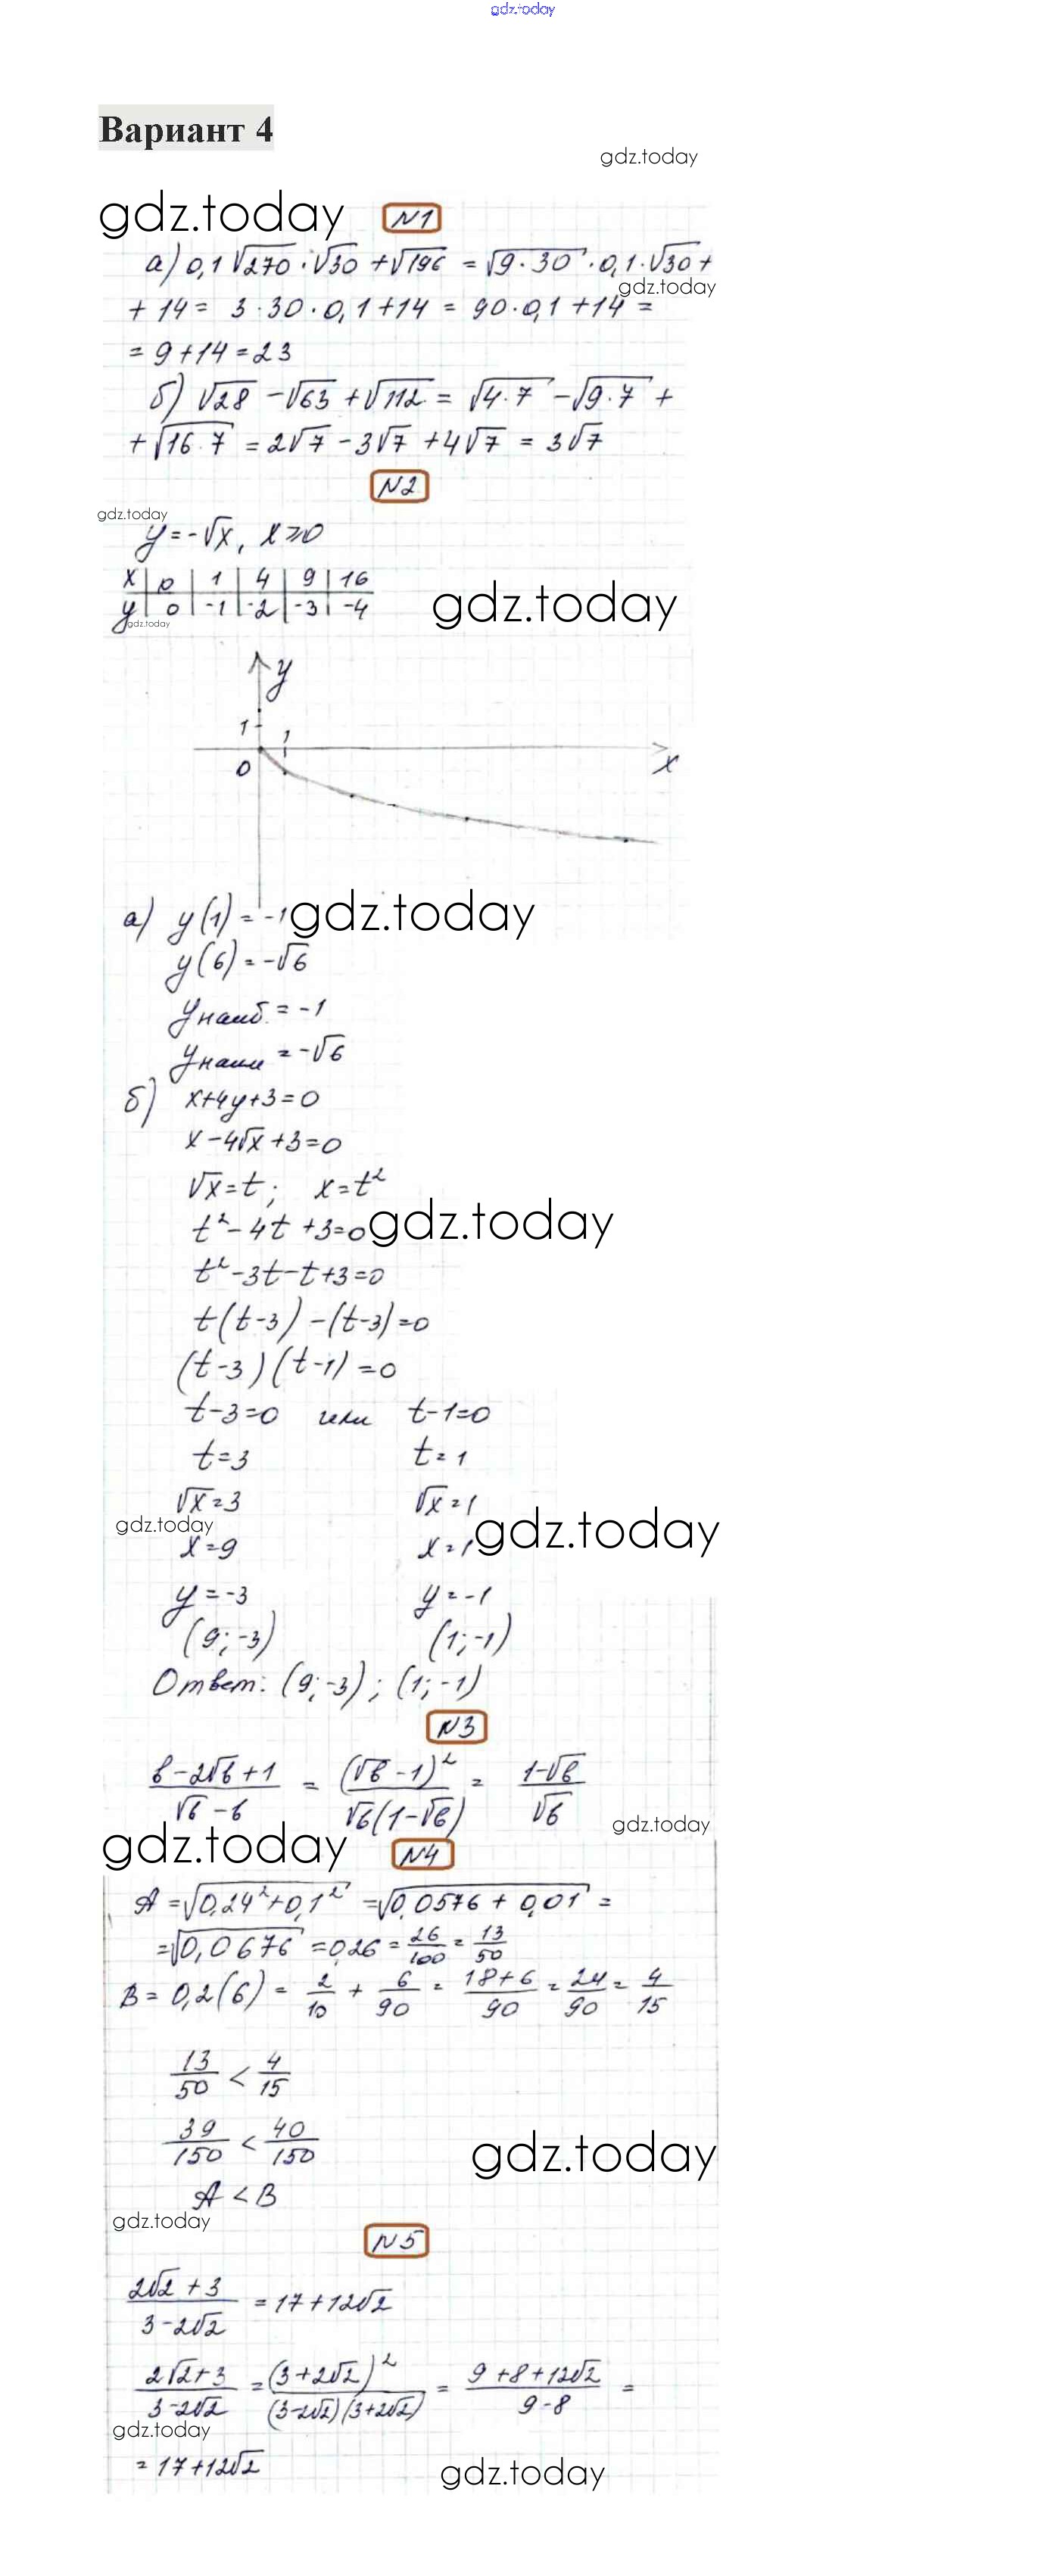 gdz.today
Вариант 4
gdz.today
gdz.today
N1
а) 0,1 √270 · √30 + √196 = √9·30 · 0,1 · √30 +
gdz.today
+ 14 = 3·30·0,1+14 = 90·0,1+14 =
= 9+14=23
б) √28 - √63 + √112 = √4·7 - √9·7 +
+ √16·7 = 2√7 - 3√7 + 4√7 = 3√7
N2
gdz.today
y = -√x, x ≥ 0
x | 0 | 1 | 4 | 9 | 16
y | 0 | -1 | -2 | -3 | -4
gdz.today
gdz.today
y
1
1
0
x
а) y(1) = -1
gdz.today
y(6) = -√6
yнаиб. = -1
yнаим = -√6
б) x+4y+3=0
x-4√x+3=0
√x=t; x=t²
t²-4t+3=0
gdz.today
t²-3t-t+3=0
t(t-3)-(t-3)=0
(t-3)(t-1)=0
t-3=0 или t-1=0
t=3 t=1
√x=3 √x=1
gdz.today
gdz.today
x=9 x=1
y=-3 y=-1
(9;-3) (1;-1)
Ответ: (9;-3); (1;-1)
N3
b-2√b+1 / √b-b = (√b-1)² / √b(1-√b) = 1-√b / √b
gdz.today
gdz.today
N4
A = √0,24²+0,1² = √0,0576 + 0,01 =
= √0,0676 = 0,26 = 26/100 = 13/50
B = 0,2(6) = 2/10 + 6/90 = 18+6/90 = 24/90 = 4/15
13/50 < 4/15
39/150 < 40/150
gdz.today
A < B
gdz.today
N5
2√2+3 / 3-2√2 = 17+12√2
2√2+3 / 3-2√2 = (3+2√2)² / (3-2√2)(3+2√2) = 9+8+12√2 / 9-8 =
gdz.today
= 17+12√2
gdz.today